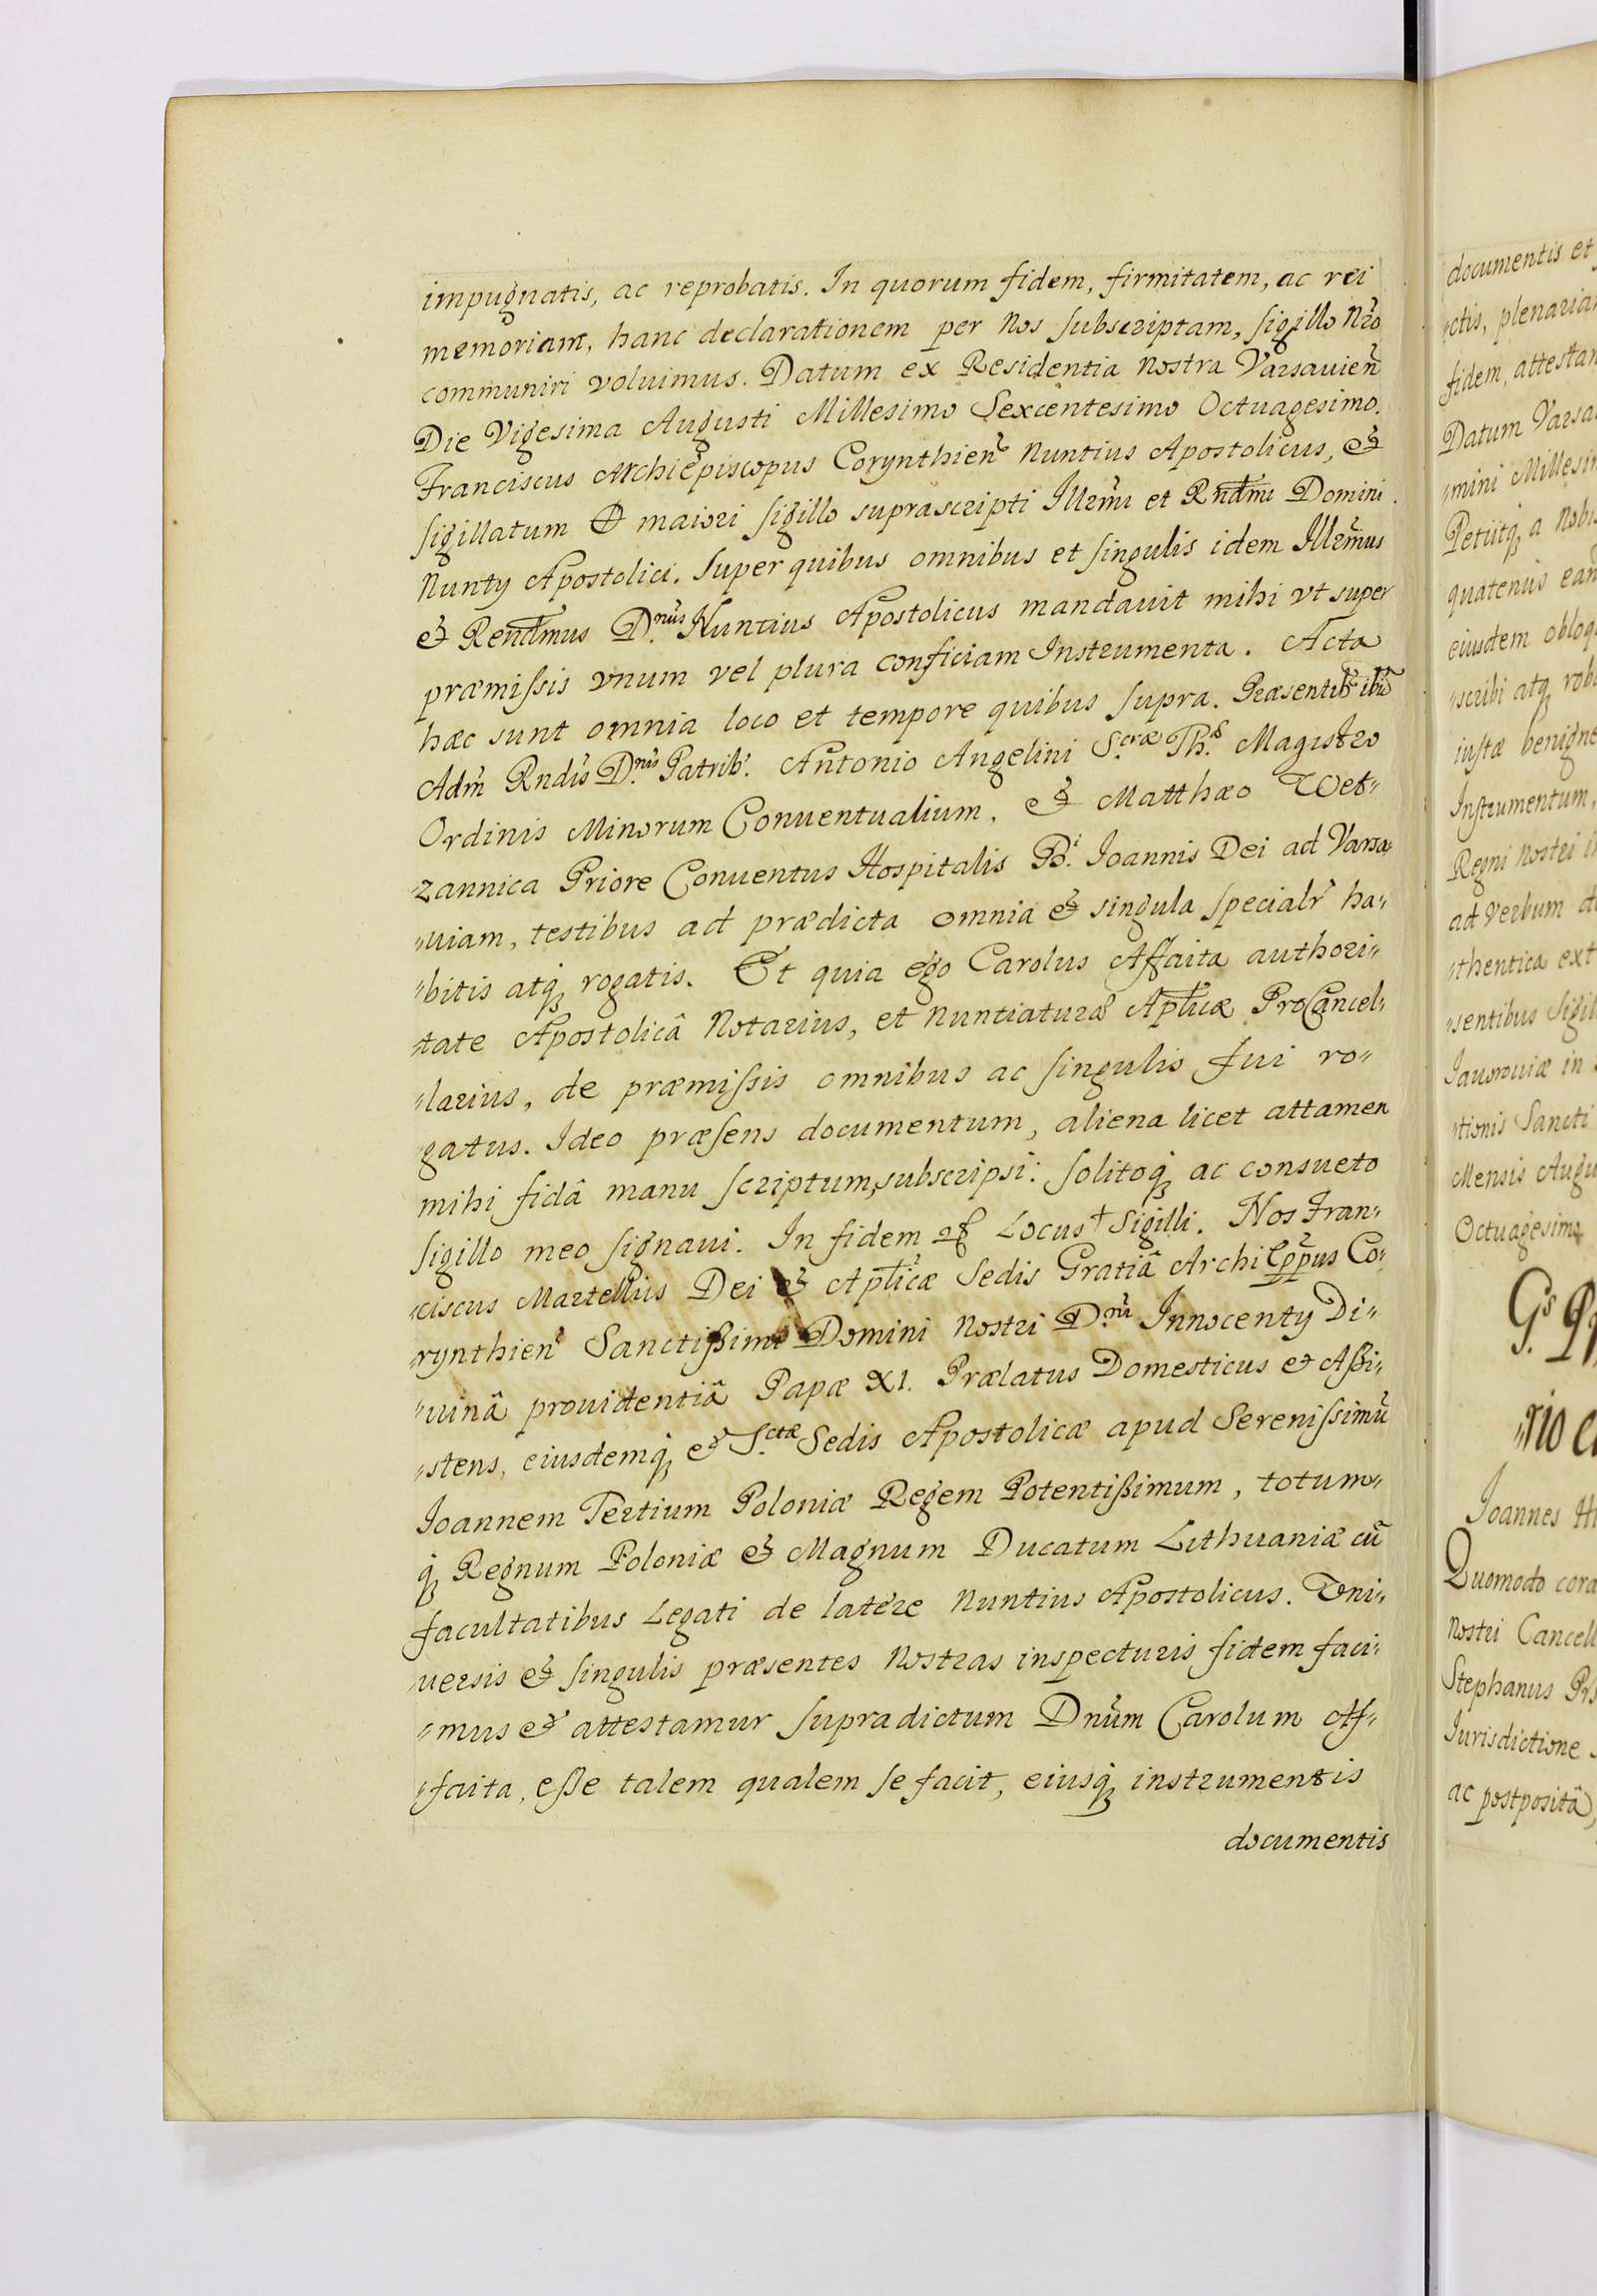 impugnatis, ac reprobatis. In quorum fidem, firmitatem, ac rei
memoriam, hanc declarationem per Nos subscriptam, sigillo Nr̃o
communiri voluimus. Datum ex Residentia Nostra Varsauien̄
Die Vigesima Augusti Millesimo Sexcentesimo Octuagesimo.
Franciscus Archiepiscopus Corynthien̄ Nuntius Apostolicus, &
sigillatum maiori sigillo suprascripti Illr̃mi et Rnd̃mi Domini
Nuntÿ Apostolici. Super quibus omnibus et singulis idem Illr̃mus
& Rend̃mus D.nus Nuntius Apostolicus mandauit mihi vt super
præmissis vnum vel plura conficiam Instrumenta. Acta
hæc sunt omnia loco et tempore quibus supra. Præsentib9 ibid̃
Adm̃ Rnd̃is D.nis Patrib9. Antonio Angelini S.cræ Th. Magistro
Ordinis Minorum Conuentualium, & Matthæo Wet„
„zannica Priore Conuentus Hospitalis B.i Ioannis Dei ad Varsa„
„uiam, testibus ad prædicta omnia & singula specialr̃ ha„
„bitis atq; rogatis. Et quia ego Carolus Affaita authori„
„tate Apostolicâ Notarius, et Nuntiaturæ Aplicæ ProCancel„
„larius, de præmissis omnibus ac singulis fui ro„
„gatus. Ideo præsens documentum, aliena licet attamen
mihi fidâ manu scriptum, subscripsi: solitoq; ac consueto
sigillo meo signaui. In fidem Locus † Sigilli. Nos Fran„
„ciscus Martellius Dei & Aplicæ Sedis Gratiâ Archiepp̃us Co„
„rynthien̄ Sanctissimi Domini Nostri D.ni Innocentÿ Di„
„uinâ prouidentiâ Papæ XI. Prælatus Domesticus et Assi„
„stens, eiusdemq; & S.ctæ Sedis Apostolicæ apud Serenissimũ
Ioannem Tertium Poloniæ Regem Potentissimum, totum„
q; Regnum Poloniæ & Magnum Ducatum Lithuaniæ cũ
facultatibus Legati de latere Nuntius Apostolicus. Vni„
„uersis & singulis præsentes Nostras inspecturis fidem faci„
„mus & attestamur supradictum Dnũm Carolum Af„
„faita, esse talem qualem se facit, eiusq; instrumentis
documentis
documentis et
„ctis, plenaria
fidem, attestan
Datum Varsa
„mini Millesi
Petiitq; a Nobis
quatenus ean
eiusdem obloq
„scribi atq; rob
iustæ benigne
Instrumentum,
Regni Nostri i
ad Verbum d
„thentica ext
„sentibus Sigil
Iauorouiæ in
„tionis Sancti
Mensis Augu
Octuagesimo
„rio
Ioannes
Quomodo cora
Nostri Cancell
Stephanus
Iurisdictione
ac postpositâ,